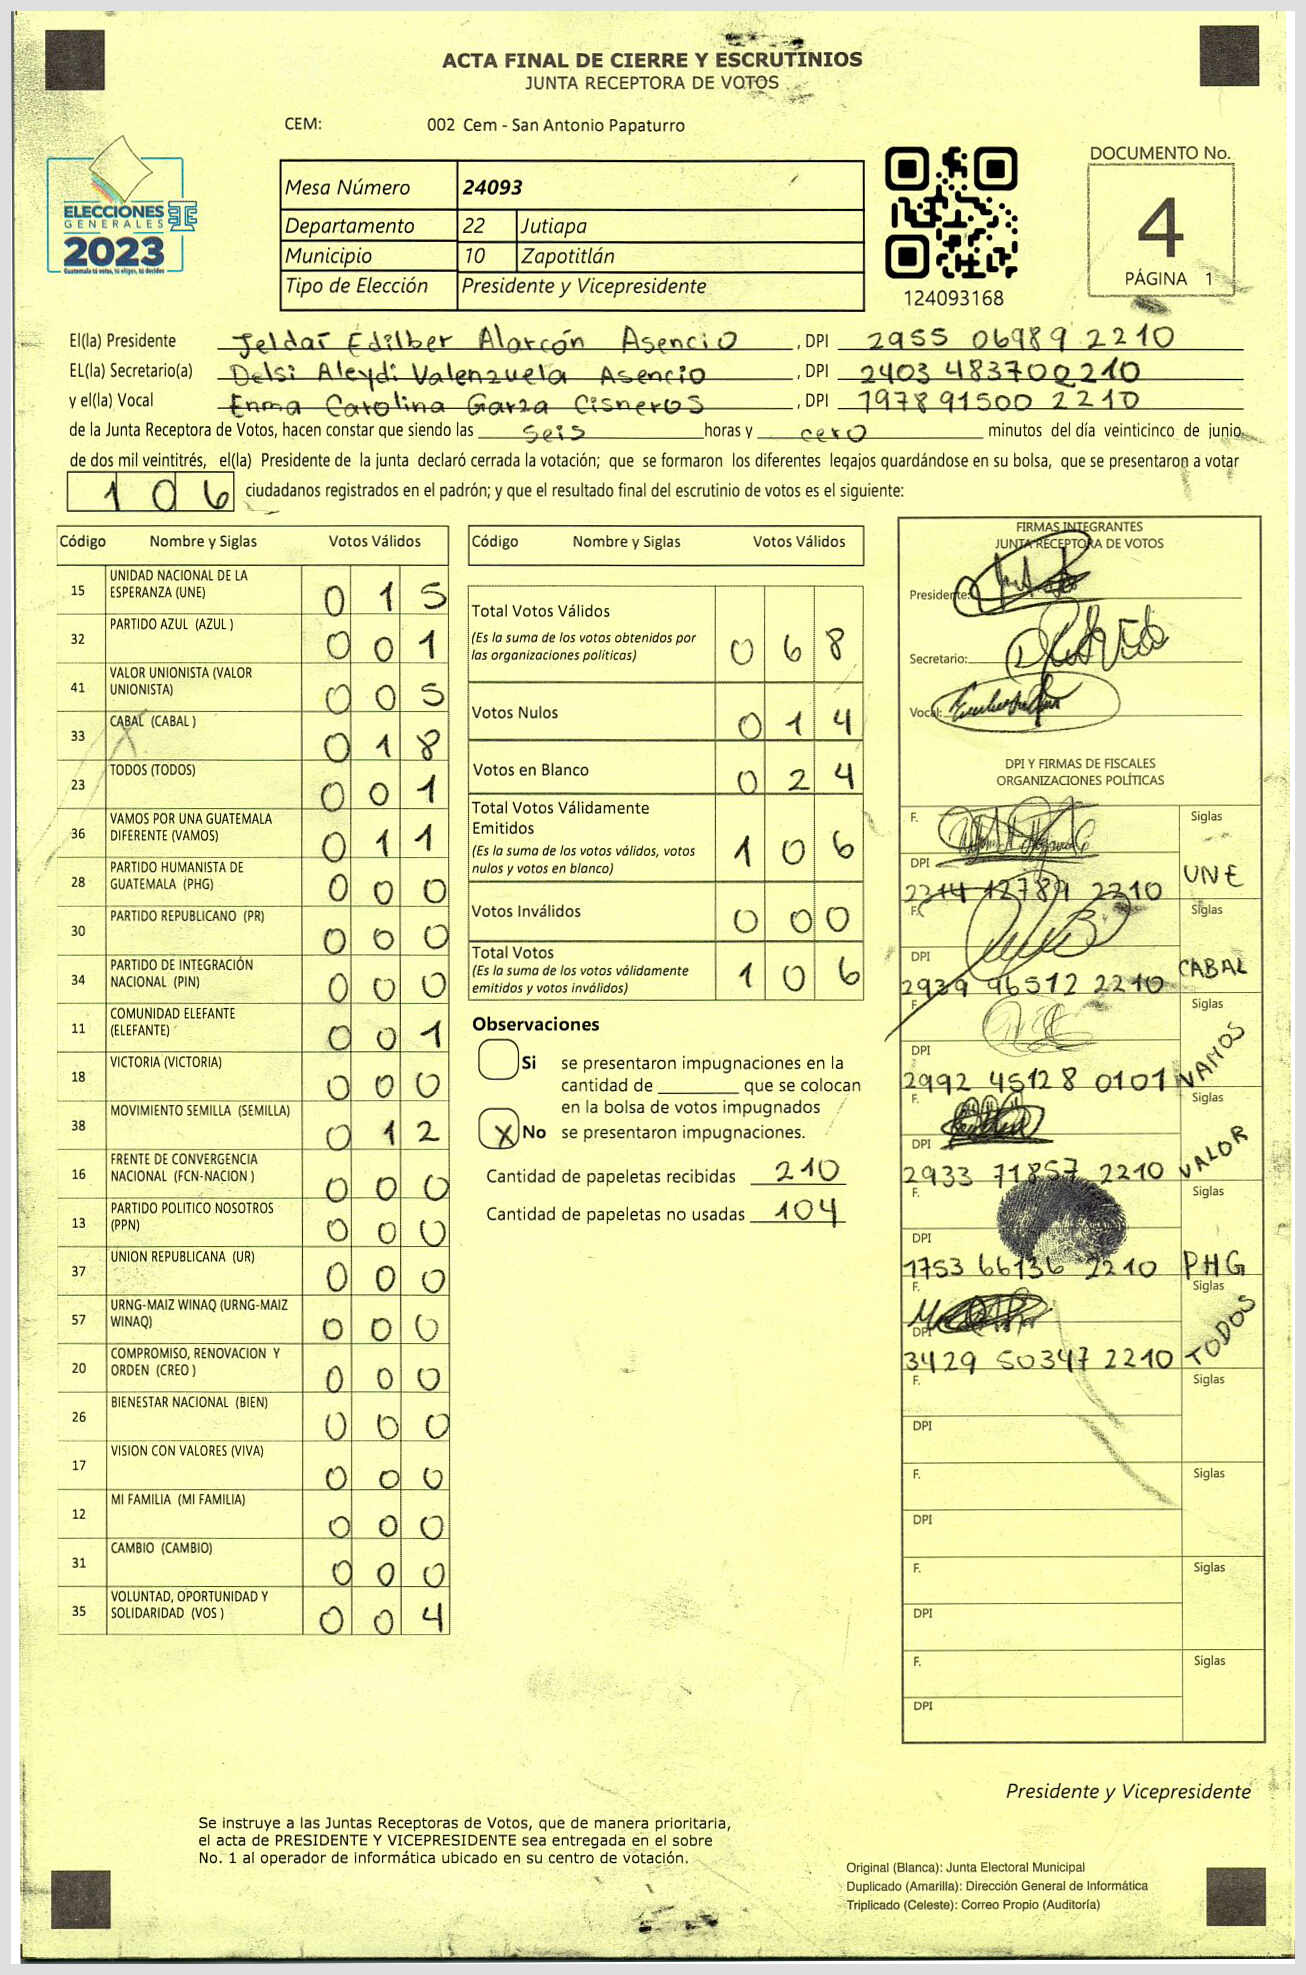 ACTA FINAL DE CIERRE Y ESCRUTINIOS
JUNTA RECEPTORA DE VOTOS
CEM: 002 Cem - San Antonio Papaturro
ELECCIONES
GENERALES
2023
Guatemala tú votas, tú eliges, tú decides
Mesa Número 24093
Departamento 22 Jutiapa
Municipio 10 Zapotitlán
Tipo de Elección Presidente y Vicepresidente
124093168
DOCUMENTO No.
4
PÁGINA 1
El(la) Presidente Jeldaí Edilber Alarcón Asencio, DPI 2955 06989 2210
EL(la) Secretario(a) Delsi Aleydi Valenzuela Asencio, DPI 2403 483700210
y el(la) Vocal Enma Carolina Garza Cisneros, DPI 197891500 2210
de la Junta Receptora de Votos, hacen constar que siendo las seis horas y cero minutos del día veinticinco de junio
de dos mil veintitrés, el(la) Presidente de la junta declaró cerrada la votación; que se formaron los diferentes legajos quardándose en su bolsa, que se presentaron a votar
106 ciudadanos registrados en el padrón; y que el resultado final del escrutinio de votos es el siguiente:
Código Nombre y Siglas Votos Válidos
15 UNIDAD NACIONAL DE LA ESPERANZA (UNE) 0 1 5
32 PARTIDO AZUL (AZUL ) 0 0 1
41 VALOR UNIONISTA (VALOR UNIONISTA) 0 0 5
33 CABAL (CABAL ) 0 1 8
23 TODOS (TODOS) 0 0 1
36 VAMOS POR UNA GUATEMALA DIFERENTE (VAMOS) 0 1 1
28 PARTIDO HUMANISTA DE GUATEMALA (PHG) 0 0 0
30 PARTIDO REPUBLICANO (PR) 0 0 0
34 PARTIDO DE INTEGRACIÓN NACIONAL (PIN) 0 0 0
11 COMUNIDAD ELEFANTE (ELEFANTE) 0 0 1
18 VICTORIA (VICTORIA) 0 0 0
38 MOVIMIENTO SEMILLA (SEMILLA) 0 1 2
16 FRENTE DE CONVERGENCIA NACIONAL (FCN-NACION ) 0 0 0
13 PARTIDO POLITICO NOSOTROS (PPN) 0 0 0
37 UNION REPUBLICANA (UR) 0 0 0
57 URNG-MAIZ WINAQ (URNG-MAIZ WINAQ) 0 0 0
20 COMPROMISO, RENOVACION Y ORDEN (CREO ) 0 0 0
26 BIENESTAR NACIONAL (BIEN) 0 0 0
17 VISION CON VALORES (VIVA) 0 0 0
12 MI FAMILIA (MI FAMILIA) 0 0 0
31 CAMBIO (CAMBIO) 0 0 0
35 VOLUNTAD, OPORTUNIDAD Y SOLIDARIDAD (VOS ) 0 0 4
Código Nombre y Siglas Votos Válidos
Total Votos Válidos 0 6 8
(Es la suma de los votos obtenidos por
las organizaciones políticas)
Votos Nulos 0 1 4
Votos en Blanco 0 2 4
Total Votos Válidamente
Emitidos 1 0 6
(Es la suma de los votos válidos, votos
nulos y votos en blanco)
Votos Inválidos 0 0 0
Total Votos 1 0 6
(Es la suma de los votos válidamente
emitidos y votos inválidos)
Observaciones
Si se presentaron impugnaciones en la
cantidad de ________ que se colocan
en la bolsa de votos impugnados
X No se presentaron impugnaciones.
Cantidad de papeletas recibidas 210
Cantidad de papeletas no usadas 104
FIRMAS INTEGRANTES
JUNTA RECEPTORA DE VOTOS
Presidente:
Secretario:
Vocal:
DPI Y FIRMAS DE FISCALES
ORGANIZACIONES POLÍTICAS
F. Siglas
DPI 2214 12789 2210 UNE
F. Siglas
DPI 2939 96512 2210 CABAL
F. Siglas
DPI 2992 45128 0101 VAMOS
F. Siglas
DPI 2933 71857 2210 VALOR
F. Siglas
DPI 1753 66136 2210 PHG
F. Siglas
DPI 3429 50347 2210 TODOS
F. Siglas
DPI
F. Siglas
DPI
F. Siglas
DPI
F. Siglas
DPI
Presidente y Vicepresidente
Se instruye a las Juntas Receptoras de Votos, que de manera prioritaria,
el acta de PRESIDENTE Y VICEPRESIDENTE sea entregada en el sobre
No. 1 al operador de informática ubicado en su centro de votación.
Original (Blanca): Junta Electoral Municipal
Duplicado (Amarilla): Dirección General de Informática
Triplicado (Celeste): Correo Propio (Auditoría)